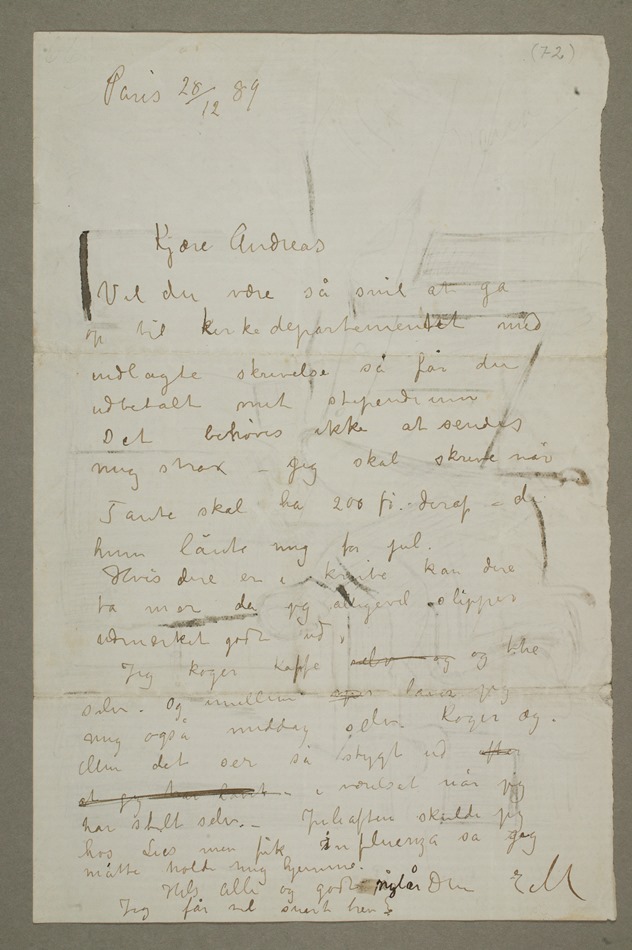 (72)
Paris 28/12 89
Kjære Andreas
Vil du være så snil at gå
op til kirkedepartementet med
indlagte skrivelse så får du
udbetalt mit stipendium
Det behøves ikke at sendes
mig strax – jeg skal skrive når
Tante skal ha 200 fr. deraf – de
hun lånte mig før jul.
Hvis dere er i knibe kan dere
ta mer da jeg alligevel slipper
udmærket godt ud.
Jeg koger kaffe selv og og the
selv. Og imellem laver jeg
mig også middag selv. Koger æg.
Men det ser så stygt ud efter
at jeg har i værelset når jeg
har stelt selv. – Juleaften skulde jeg
hos Lies men fik influenza så jeg
måtte holde mig hjemme.
Hils alle og godt nytår Din EM
Jeg får vel snart brev?